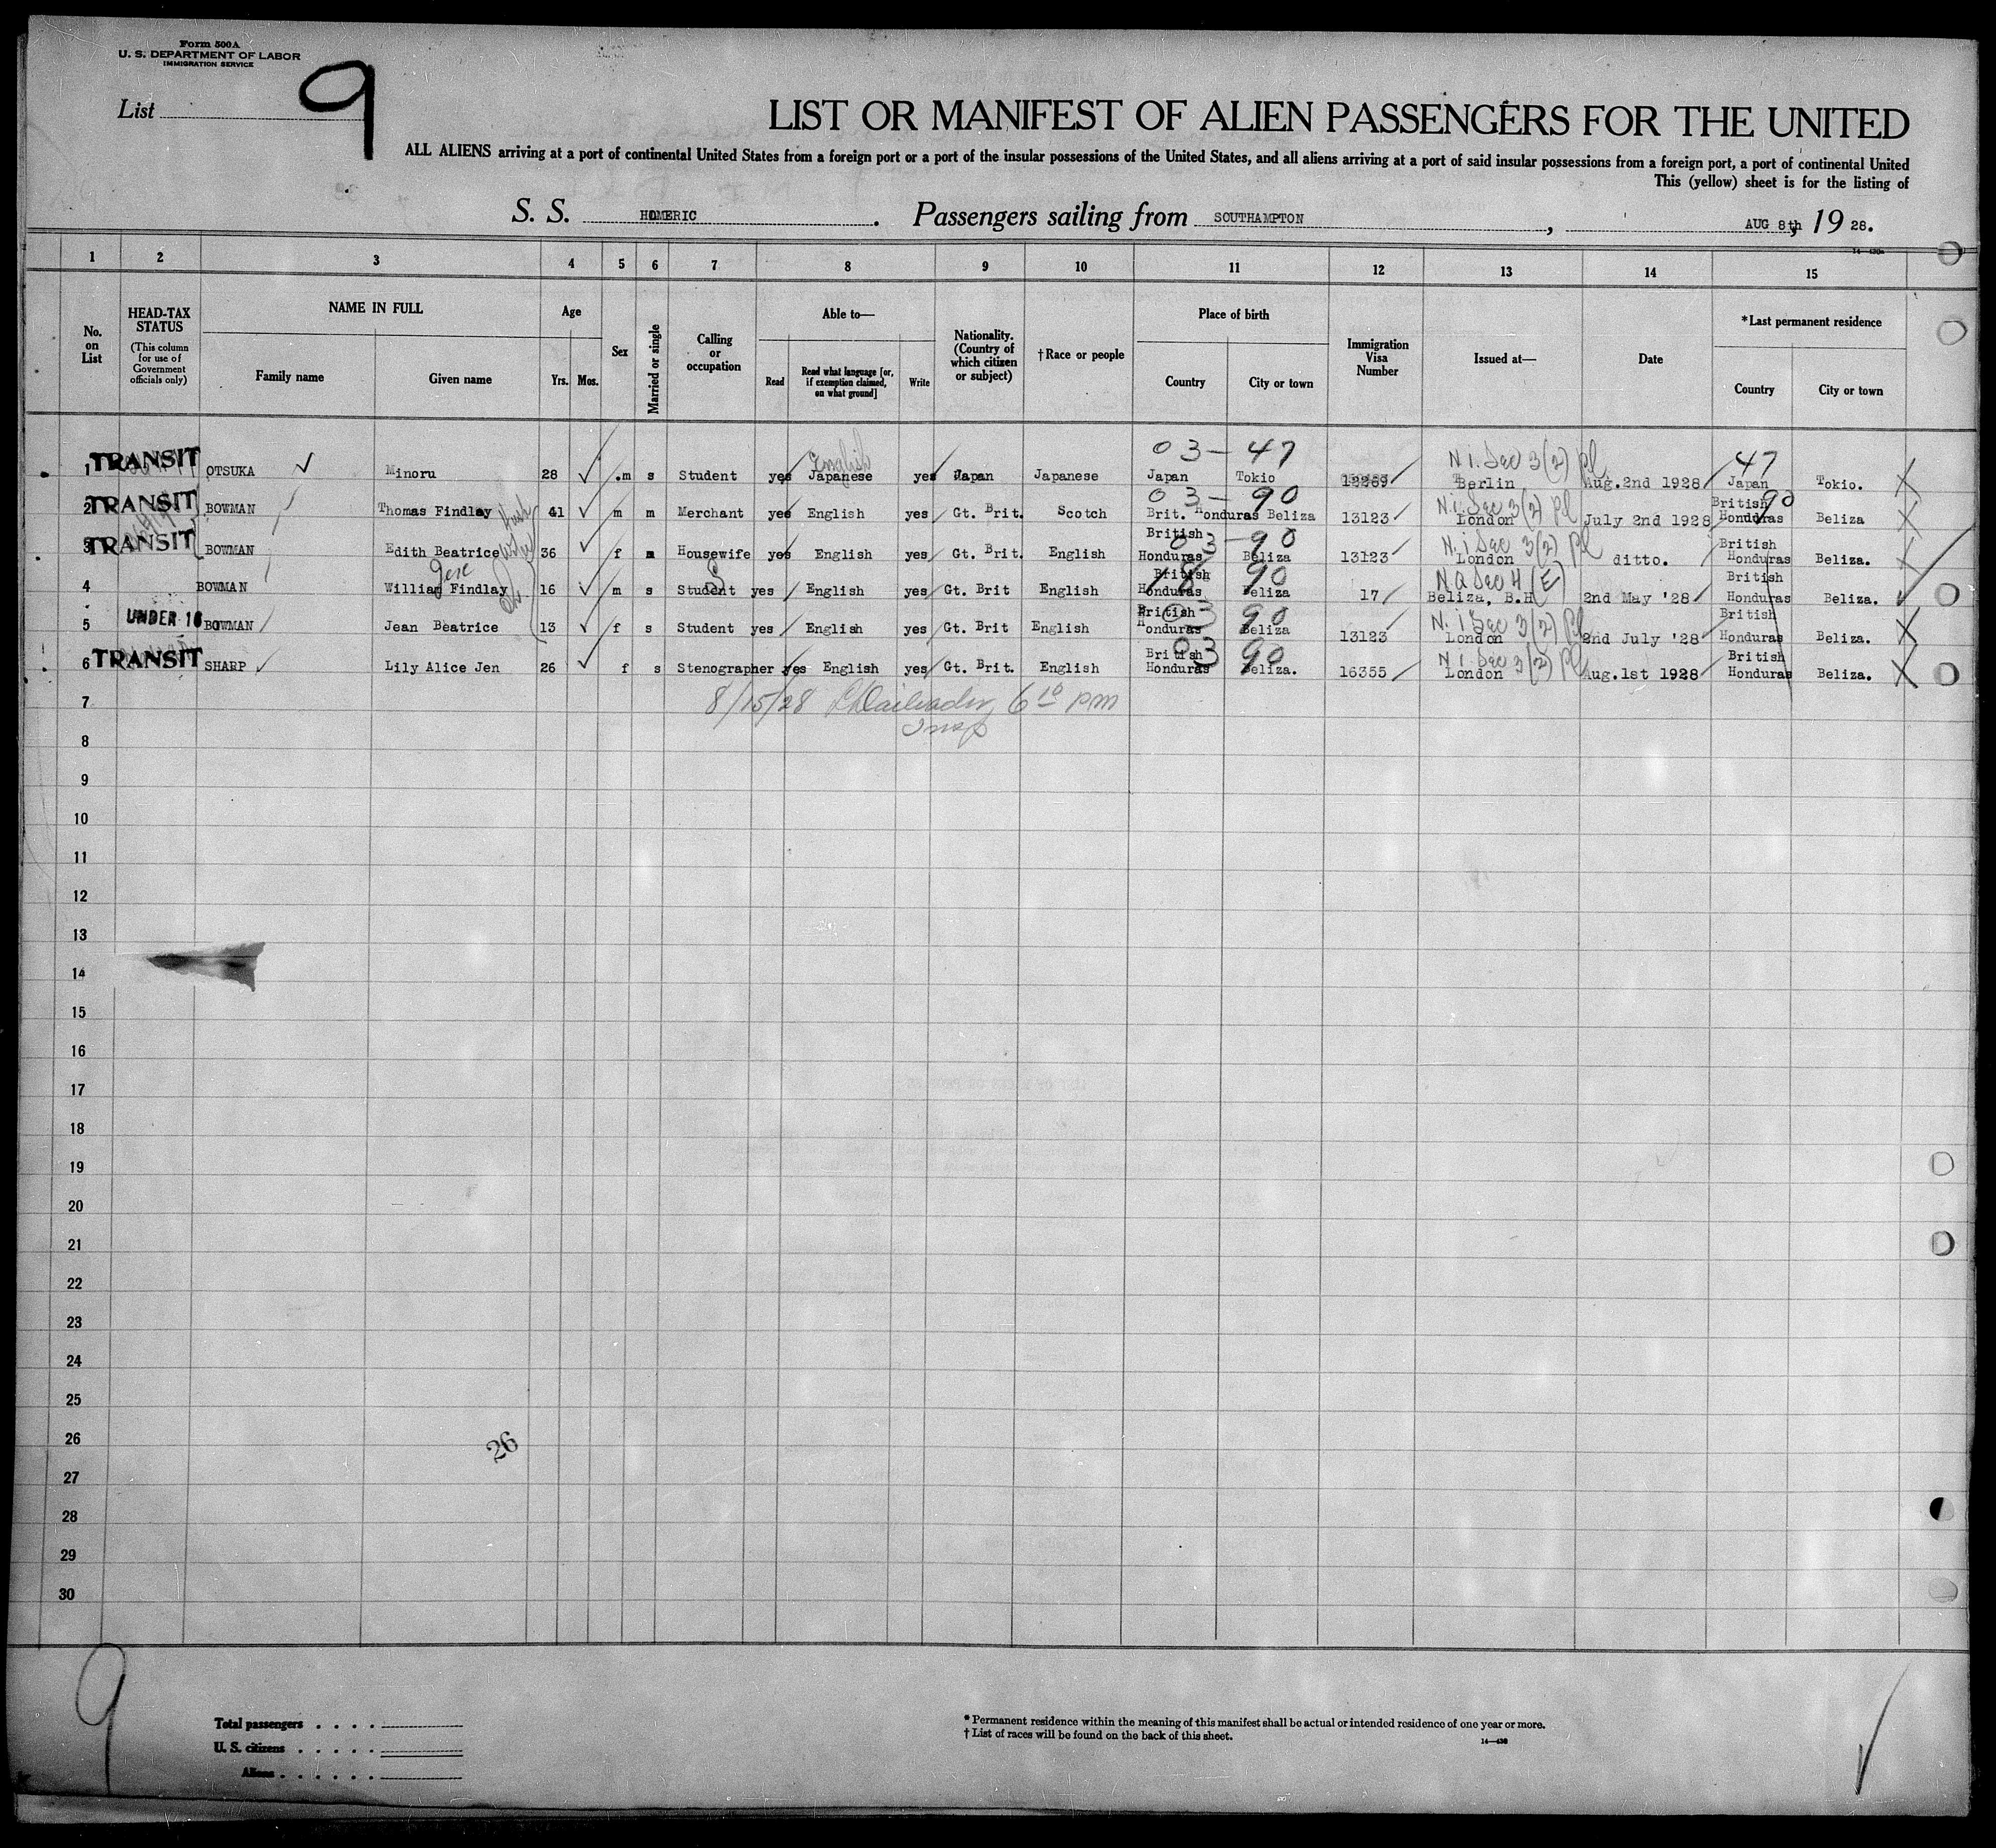 Form 500A
U. S. DEPARTMENT OF LABOR
IMMIGRATION SERVICE
List 9
LIST OR MANIFEST OF ALIEN PASSENGERS FOR THE UNITED
ALL ALIENS arriving at a port of continental United States from a foreign port or a port of the insular possessions of the United States, and all aliens arriving at a port of said insular possessions from a foreign port, a port of continental United
This (yellow) sheet is for the listing of
S. S. HOMERIC. Passengers sailing from SOUTHAMPTON, AUG 8th, 19 28.
1 2 3 4 5 6 7 8 9 10 11 12 13 14 15
No. on List
HEAD-TAX STATUS (This column for use of Government officials only)
NAME IN FULL Family name Given name
Age Yrs. Mos.
Sex
Married or single
Calling or occupation
Able to— Read Read what language [or, if exemption claimed, on what ground] Write
Nationality. (Country of which citizen or subject)
†Race or people
Place of birth Country City or town
Immigration Visa Number
Issued at—
Date
*Last permanent residence Country City or town
English 03-47 N I. Sec 3(2) pl 47
1 TRANSIT OTSUKA Minoru 28 m s Student yes Japanese yes Japan Japanese Japan Tokio Berlin Aug. 2nd 1928 Japan Tokio.
03-90 N.I. Sec 3(2) pl 90
2 TRANSIT BOWMAN Thomas Findlay 41 m m Merchant yes English yes Gt. Brit. Scotch Brit. Honduras Beliza 13123 London July 2nd 1928 British Honduras Beliza
03-90 N. I Sec 3(2) pl
3 TRANSIT BOWMAN Edith Beatrice 36 f m Housewife yes English yes Gt. Brit. English British Honduras Beliza 13123 London ditto. British Honduras Beliza.
S 90 N Q Sec 4 (E)
4 BOWMAN William Findlay 16 m s Student yes English yes Gt. Brit English British Honduras Beliza 17 Beliza, B.H 2nd May '28 British Honduras Beliza.
03 90 N. I Sec 3(2) pl
5 UNDER 16 BOWMAN Jean Beatrice 13 f s Student yes English yes Gt. Brit English British Honduras Beliza 13123 London 2nd July '28 British Honduras Beliza.
03 90 N I Sec 3(2) pl
6 TRANSIT SHARP Lily Alice Jen 26 f s Stenographer yes English yes Gt. Brit. English British Honduras Beliza. 16355 London Aug. 1st 1928 British Honduras Beliza.
7 8/15/28 6 10 pm
Insp
8
9
10
11
12
13
14
15
16
17
18
19
20
21
22
23
24
25
26
26
27
28
29
30
9
Total passengers
U. S. citizens
Aliens
* Permanent residence within the meaning of this manifest shall be actual or intended residence of one year or more.
† List of races will be found on the back of this sheet.
14—430